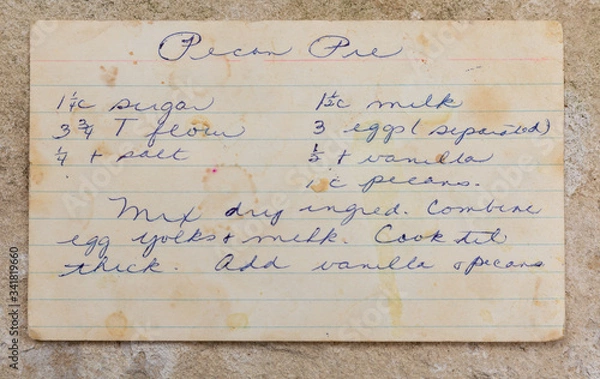 Pecan Pie
1 1/4 c sugar 1 1/2 c milk
3 3/4 T flour 3 eggs ( separated)
1/4 t salt 1/2 t vanilla
1 c pecans.
Mix dry ingred. Combine
egg yolks + milk. Cook til
thick. Add vanilla & pecans
Adobe Stock | #341819660